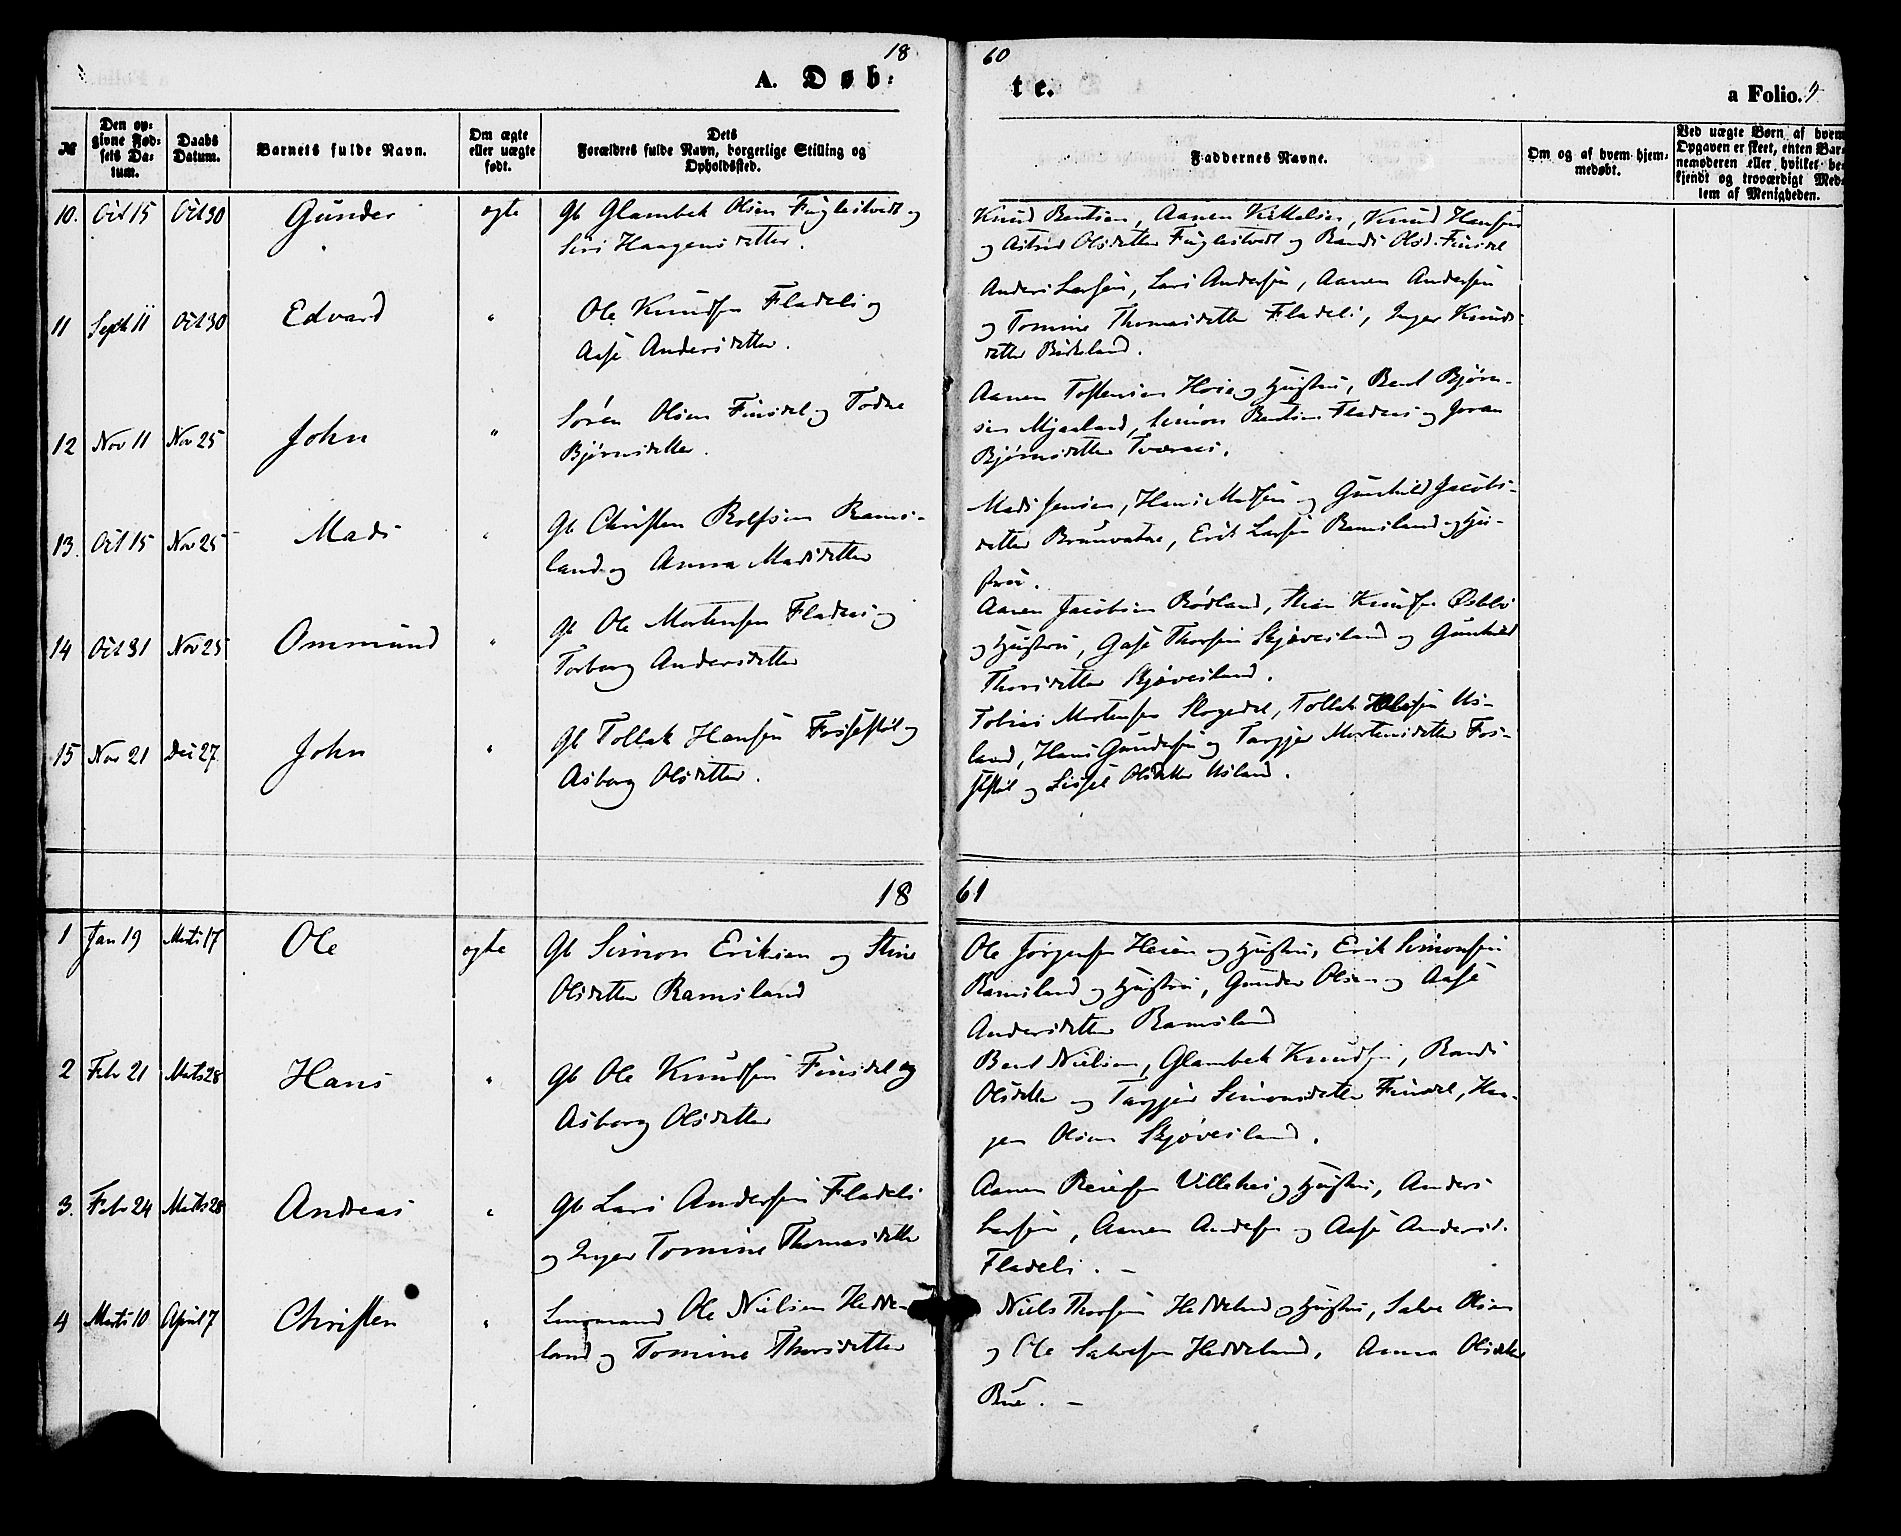 18 60
A. Døb: te.
a Folio. 9
№
Den op-
givne Fød-
sels Da-
tum.
Daabs
Datum.
Barnets fulde Navn.
Om ægte
eller uægte
født.
Dets
Forældres fulde Navn, borgerlige Stilling og
Opholdssted.
Faddernes Navne.
Om og af hvem hjem-
medøbt.
Ved uægte Børn af hvem
Opgaven er skeet, enten Bar-
nemoderen eller hvilket be-
kjendt og troværdigt Med-
lem af Menigheden.
10. Oct 15 Oct 30 Gunder ægte Gb Glambek Olsen Fuglestvedt og
Siri Haagensdatter.
Knud Bentsen, Aanen Kittelsen, Knud Hansen
og Astrid Olsdatter Fuglestvedt og Randi Olsd. Finsdal
11 Sept 11 Oct 30 Edvard " Ole Knudsen Fladeli og
Aase Andersdatter.
Anders Larsen, Lars Andersen, Aanen Andersen
og Tomine Thomasdatter Fladeli, Inger Knuds-
datter Birkeland.
12 Nov 11 Nov 25 John " Søren Olsen Finsdal og Todne
Bjørnsdatter.
Aanen Tostensen Hoie og Hustru, Bent Bjørn-
sen Mjaaland, Simon Bentsen Fladeli og Joran
Bjørnsdatter Tveraas.
13. Oct 15 Nov 25 Mads " Gb Christen Rolfsen Rams-
land og Anna Madsdatter
Mads Jensen, Hans Madsen og Gunhild Jacobs-
datter Brunvatne, Erik Larsen Ramsland og Hu-
stru.
14 Oct 31 Nov 25 Ommund " Gb Ole Mortensen Fladeli og
Torborg Andersdatter
Aanen Jacobsen Rødland, Stian Knudsen
og Hustru, Thorsen Skjøvesland og Gunhild
Thorsdatter Skjøvesland.
15 Nov 21 Dec 27. John " Gb Tollak Hansen Fossestål og
Asborg Olsdatter.
Tobias Mortensen Skogedal, Tollak Us-
land, Hans Gundersen og Targjer Mortensdatter Fos-
sestøl og Sissel Olsdatter Usland.
18 61
1 Jan 19 Marts 17 Ole ægte Gb Simon Eriksen og Stine
Olsdatter Ramsland
Ole Jørgensen Heien og Hustru, Erik Simonsen
Ramsland og Hustru, Gunder Olsen og Aase
Andersdatter Ramsland
2 Febr 21 Marts 28 Hans " Gb Ole Knudsen Finsdal og
Asborg Olsdatter
Bent Nielsen, Glambek Knudsen, Randi
Olsdatter og Targjer Simonsdatter Finsdal, Haa-
gen Olsen Skjøvesland.
3. Febr 24 Marts 28 Andreas " Gb Lars Andersen Fladeli
og Inger Tomine Thomasdatter
Aanen Reiersen Villehei og Hustru, Anders
Larsen, Aanen Andersen og Aase Andersd.
Fladeli. –
4 Marts 10 April 7 Christen " Ole Nielsen Hedde-
land og Tomine Thorsdatter
Niels Thorsen Heddeland og Hustru, Salve Olsen
og Ole Salvesen Heddeland, Anna Olsdatter
Bue. –